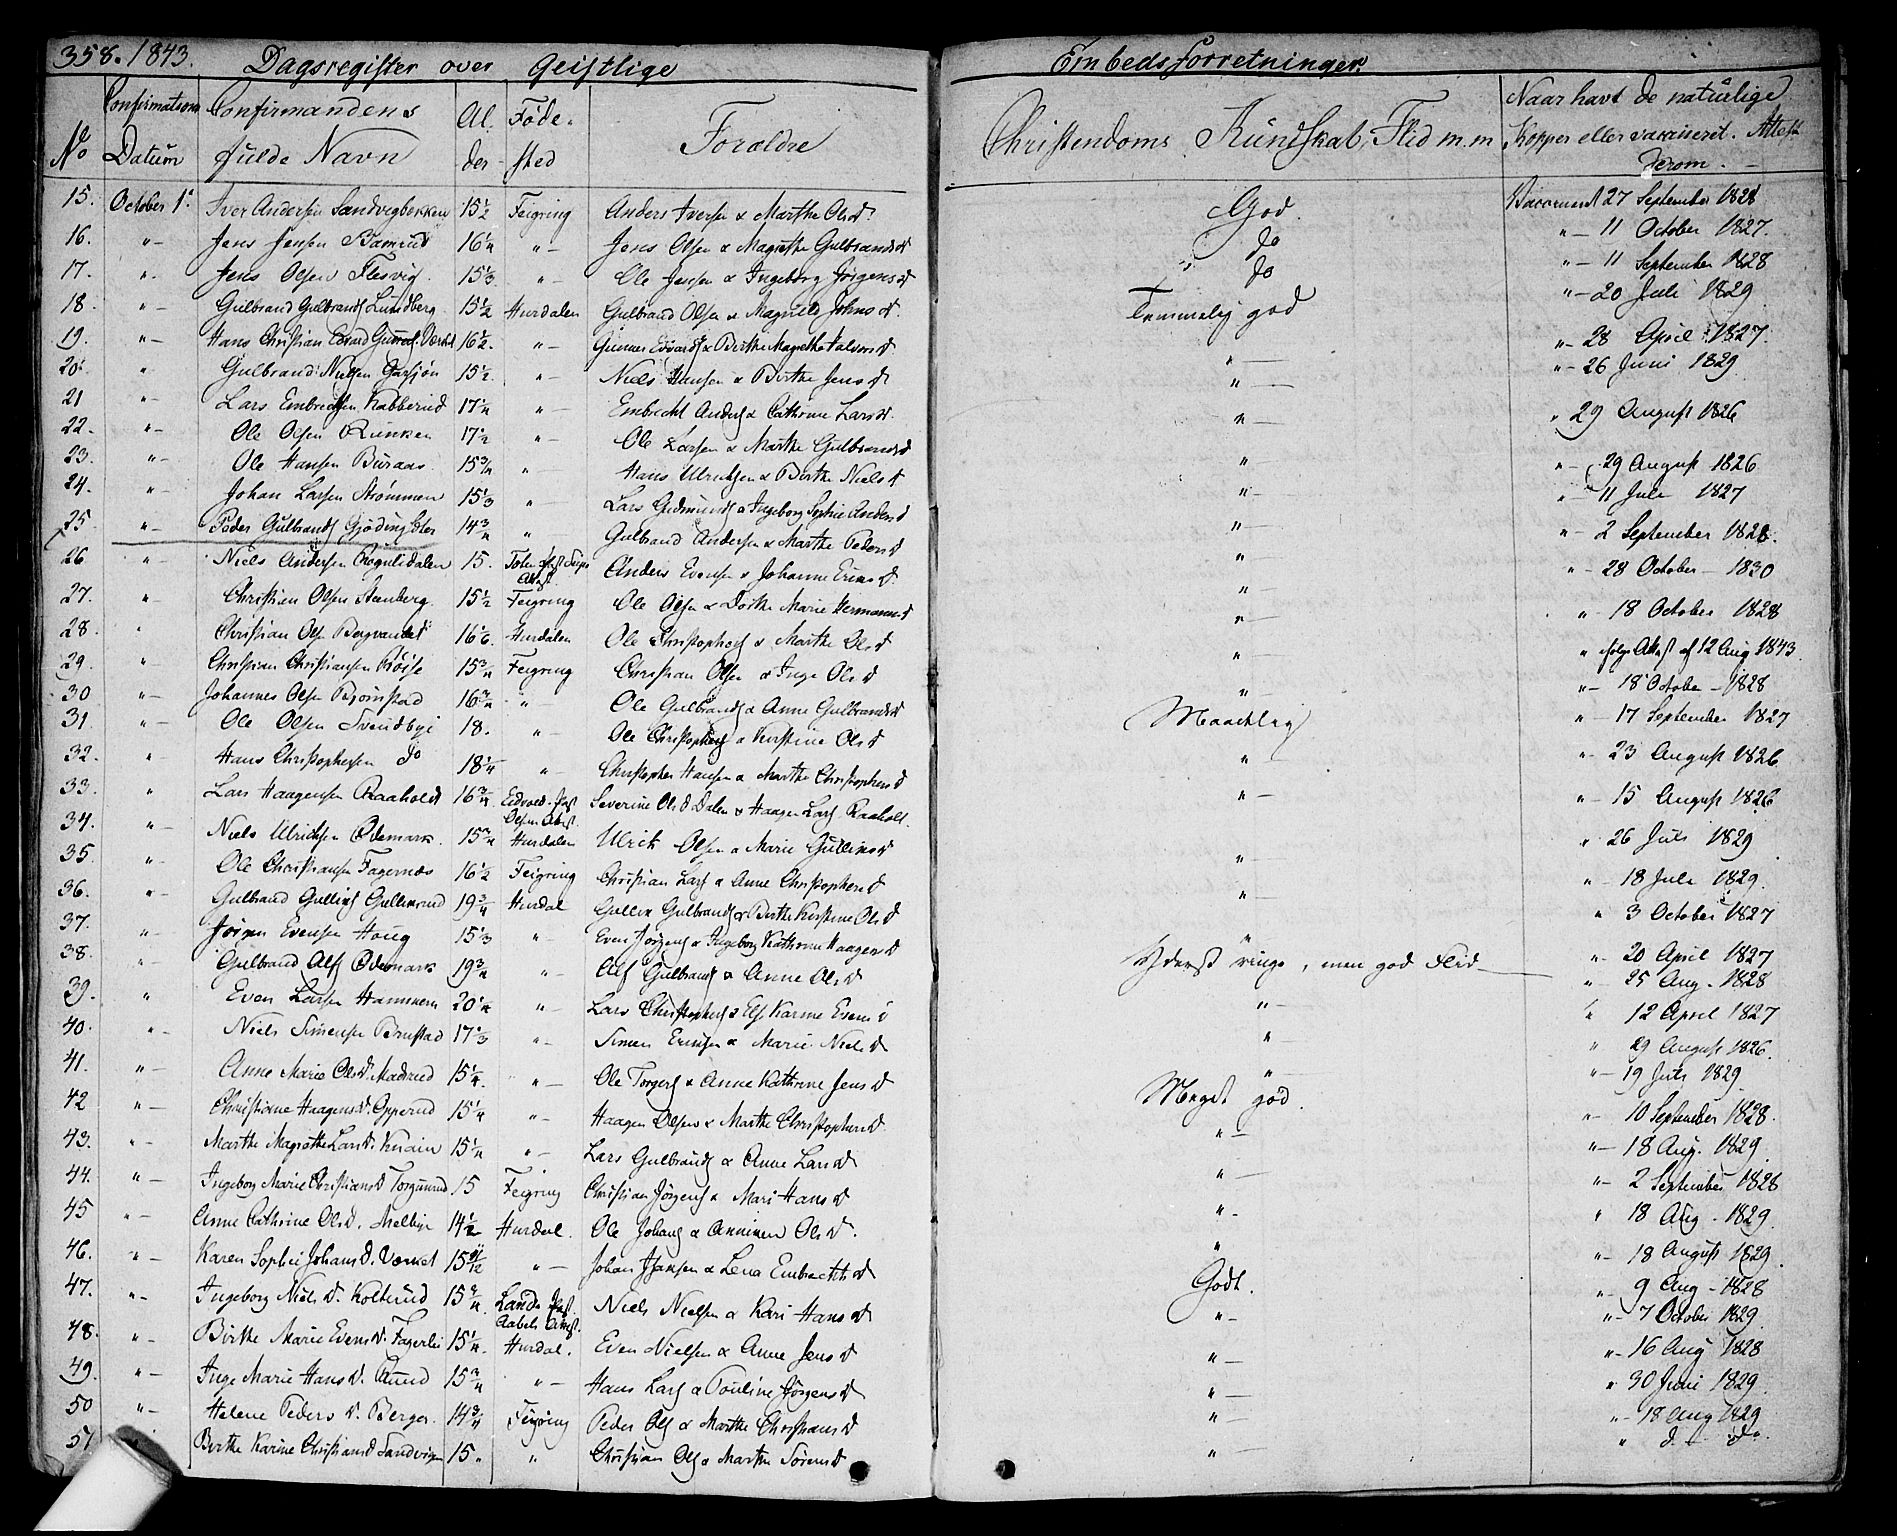 358. 1843. Dagsregister over Geistlige Embedsforretninger.
No Confirmations Datum Confirmandens fulde Navn Alder Fødested Forældre Christendoms Kundskab, Flid m.m Naar havt de naturlige Kopper eller vaccineret. Attest derom.
15. October 1. Iver Andersen Sandvigbækken 15½ Feigring Anders Iversen & Marthe Olsd. God. Vaccineret 27 September 1828
16. " Jens Jensen 16¼ " Jens Olsen & Magrethe Gulbrandsd do " 11 October 1827.
17. " Jens Olsen Flesvig. 15⅓ " Ole Jensen & Ingeborg Jørgensd do " 11 September 1828
18. " Gulbrand Gulbrands Lundberg 15½ Hurdalen Gulbrand Olsen & Magnild Johnsd. Temmelig god " 20 Juli 1829
19. " Hans Christian Edvard Værket 16½ " Gunner Edvards & Birthe Magrethe Halvorsd. " " 28 April 1827.
20. " Gulbrand Nielsen Garsjøn 15½ " Niels Hansen & Birthe Jensd " " 26 Juni 1829
21 " Lars Embrechtsen Kabberud 17¼ " Embrecht Anders & Cathrine Larsd. " " 29 August 1826
22. " Ole Olsen Runken 17½ " Ole Larsen & Marthe Gulbrandsd " " 29 August 1826
23. " Ole Hansen Buraas 15¾ " Hans Ulrichsen & Birthe Nielsd " " 11 Juli 1827
24. " Johan Larsen Strømmen 15⅓ " Lars Gudmunds & Ingeborg Sophie Andersd " " 2 September 1828.
25 " Peder Gulbrands Gjøding 14¾ " Gulbrand Andersen & Marthe Pedersd " " 28 October 1830
26 " Niels Andersen Rognlidalen 15. Toten Attest Anders Evensen & Johanne Ericsd. " " 18 October 1828
27. " Christian Olsen Steenberg 15½ Feigring Ole Olsen & Dorthe Marie Hermansd " " følge Attest af 12 Aug 1843.
28. " Christian Olsen Bergvandet 16⅙ Hurdalen Ole Christophers & Marthe Olsd " " 18 October 1828
29. " Christian Christiansen Røise 15¾ Feigring Christian Olsen & Inge Olsd " " 17 September 1827
30 " Johannes Olsen Bjørnstad 16¾ " Ole Gulbrands & Anne Gulbrandsd Maadelig " 23 August 1826.
31 " Ole Olsen Svendbye 18. " Ole Christophers & Kirstine Olsd " " 15 August 1826
32. " Hans Christophersen do 18¼ " Christopher Hansen & Marthe Christophersd " " 26 Juli 1829
33. " Lars Haagensen Raaholdt 16¾ Eidvold Severine Olsd Dalen & Haagen Lars Raaholt. " 18 Juli 1829
34. " Niels Ulrichsen Ødemark. 15¾ Hurdalen Ulrick Olsen & Marie Gullinsd " " 3 October 1827
35 " Ole Christiansen Fagernæs 16½ Feigring Christian Lars & Anne Christophersd "
36. " Gulbrand Gullins Gullinsrud 19¾ Hurdal Gullin Gulbrands & Birthe Kirstine Olsd " " 20 April 1827
37. " Jørgen Evensen Houg 15⅓ " Even Jørgens & Ingeborg Kathrine Haagensd Yderst ringe, men god Flid " 25 Aug. 1828
38. " Gulbrand Alfs Ødemark 19¾ " Alf Gulbrands & Anne Olsd " " 12 April 1827
39. " Even Larsen Hammern 20¼ " Lars Christophers & Else Karine Evensd " " 29 August 1826.
40. " Niels Simensen Brustad 17⅓ " Simen Ericksen & Marie Nielsd " " 19 Juli 1829
41. " Anne Marie Olsd. 15¼. " Ole Torgers & Anne Kathrine Jensd Meget god. " 10 September 1828.
42 " Christiane Haagensd. Opperud 15¼ " Haagen Olsen & Marthe Christophersd " " 18 Aug. 1829
43. " Marthe Magrethe Larsd. Knain 15¼ " Lars Gulbrands & Anne Larsd " " 2 September 1828
44. " Ingeborg Marie Christiansd Torgunrud 15 Feigring Christian Jørgens & Mari Hansd " " 18 Aug. 1829
45 " Anne Cathrine Olsd. Melbye 14½ Hurdal. Ole Johans & Anniken Olsd. " " 18 August 1829
46. " Karen Sophie Johansd. Værket 15 11/12 " Johan Jansen & Lena Embrechtsd Godt. " 9 Aug 1828
47. " Ingeborg Nielsd. Kolterud 15¾. Land Attest. Niels Nielsen & Kari Hansd " " 7 October 1829
48. " Birthe Marie Evensd. Fagerlie 15¼. Hurdal. Even Nielsen & Anne Jensd " " 16 Aug 1828
49. " Inge Marie Hansd. Ruud 15¾ " Hans Lars & Pouline Jørgensd " " 30 Juni 1829
50 " Helene Pedersd. Berger. 14¾ Feigring Peder Ols & Marthe Christiansd " " 18 Aug 1829
51 Birthe Karine Christiansd Sandvigen 15. " Christian Ols & Marthe Sørensd " " d. do.